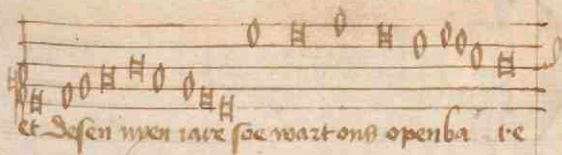 et desen nyen iare soe wart ons openba re